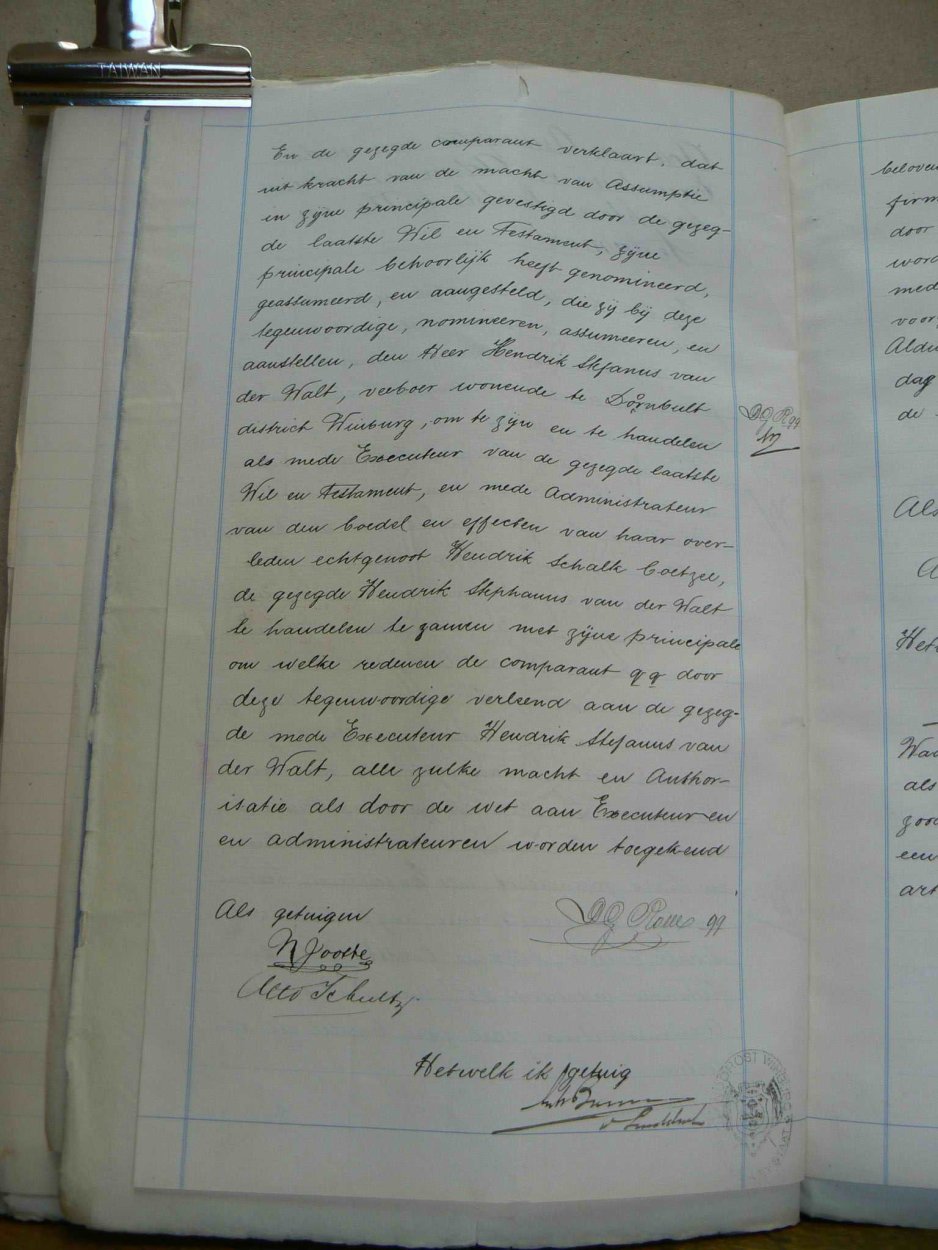 TAIWAN
En de gezegde comparant verklaart, dat
uit kracht van de macht van Assumptie
in zyne principale gevestigd door de gezeg-
de laatste Wil en Testament, zyne
principale behoorlijk heeft genomineerd,
geassumeerd, en aangesteld, die zij bij deze
tegenwoordige, nomineeren, assumeeren, en
aanstellen, den Heer Hendrik Stefanus van
der Walt, veeboer wonende te Dornbult
district Winburg, om te zijn en te handelen
als mede Executeur van de gezegde laatste
Wil en Testament, en mede Administrateur
van den boedel en effecten van haar over-
leden echtgenoot Hendrik Schalk Coetzee,
de gezegde Hendrik Stephanus van der Walt
te handelen te zamen met zijne principale
om welke redenen de comparant qq door
deze tegenwoordige verleend aan de gezeg-
de mede Executeur Hendrik Stefanus van
der Walt, alle zulke macht en Author-
isatie als door de wet aan Executeuren
en administrateuren worden toegekend
DG R qq
Als getuigen
DG qq
N Jooste
Otto Schultz
Hetwelk ik getuig
beloven
firm
door
word
med
voor
dag
de
Als
als
een
art